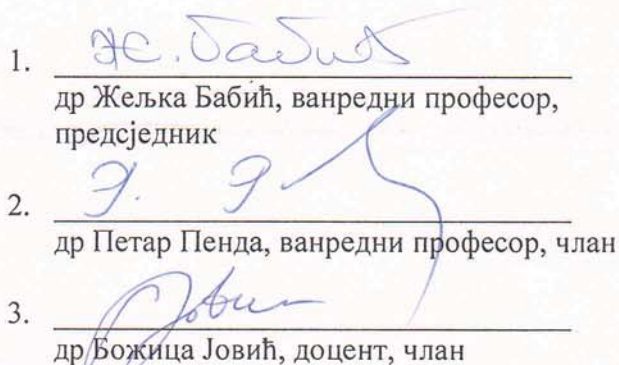 1. Ж. Бабић
др Жељка Бабић, ванредни професор,
предсједник
2.
др Петар Пенда, ванредни професор, члан
3. Јовић
др Божица Јовић, доцент, члан